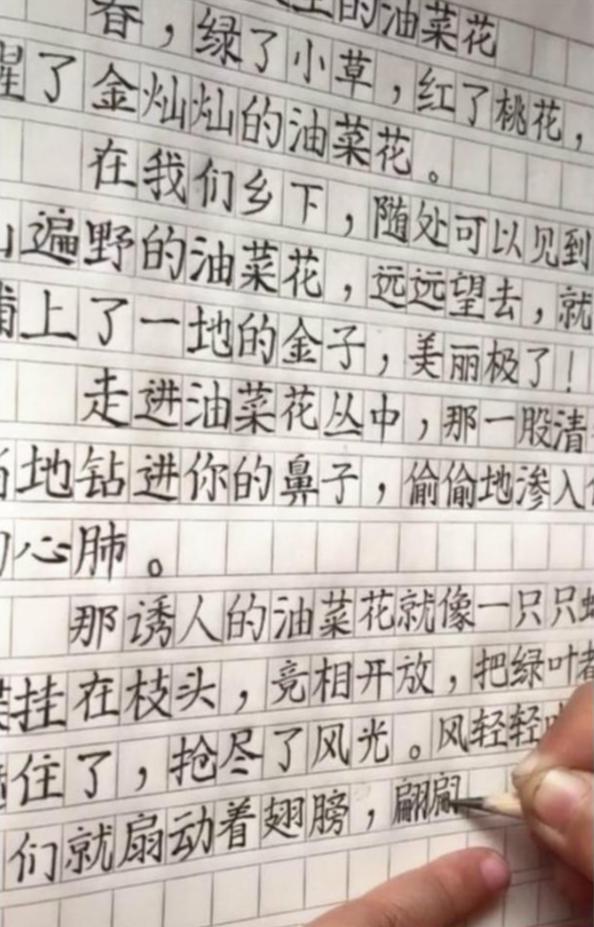 的油菜花
春，绿了小草，红了桃花，
醒了金灿灿的油菜花。
在我们乡下，随处可以见到
遍野的油菜花，远远望去，就
铺上了一地的金子，美丽极了！
走进油菜花丛中，那一股清
地钻进你的鼻子，偷偷地渗入
心肺。
那诱人的油菜花就像一只只
挂在枝头，竞相开放，把绿叶都
住了，抢尽了风光。风轻轻
们就扇动着翅膀，翩翩